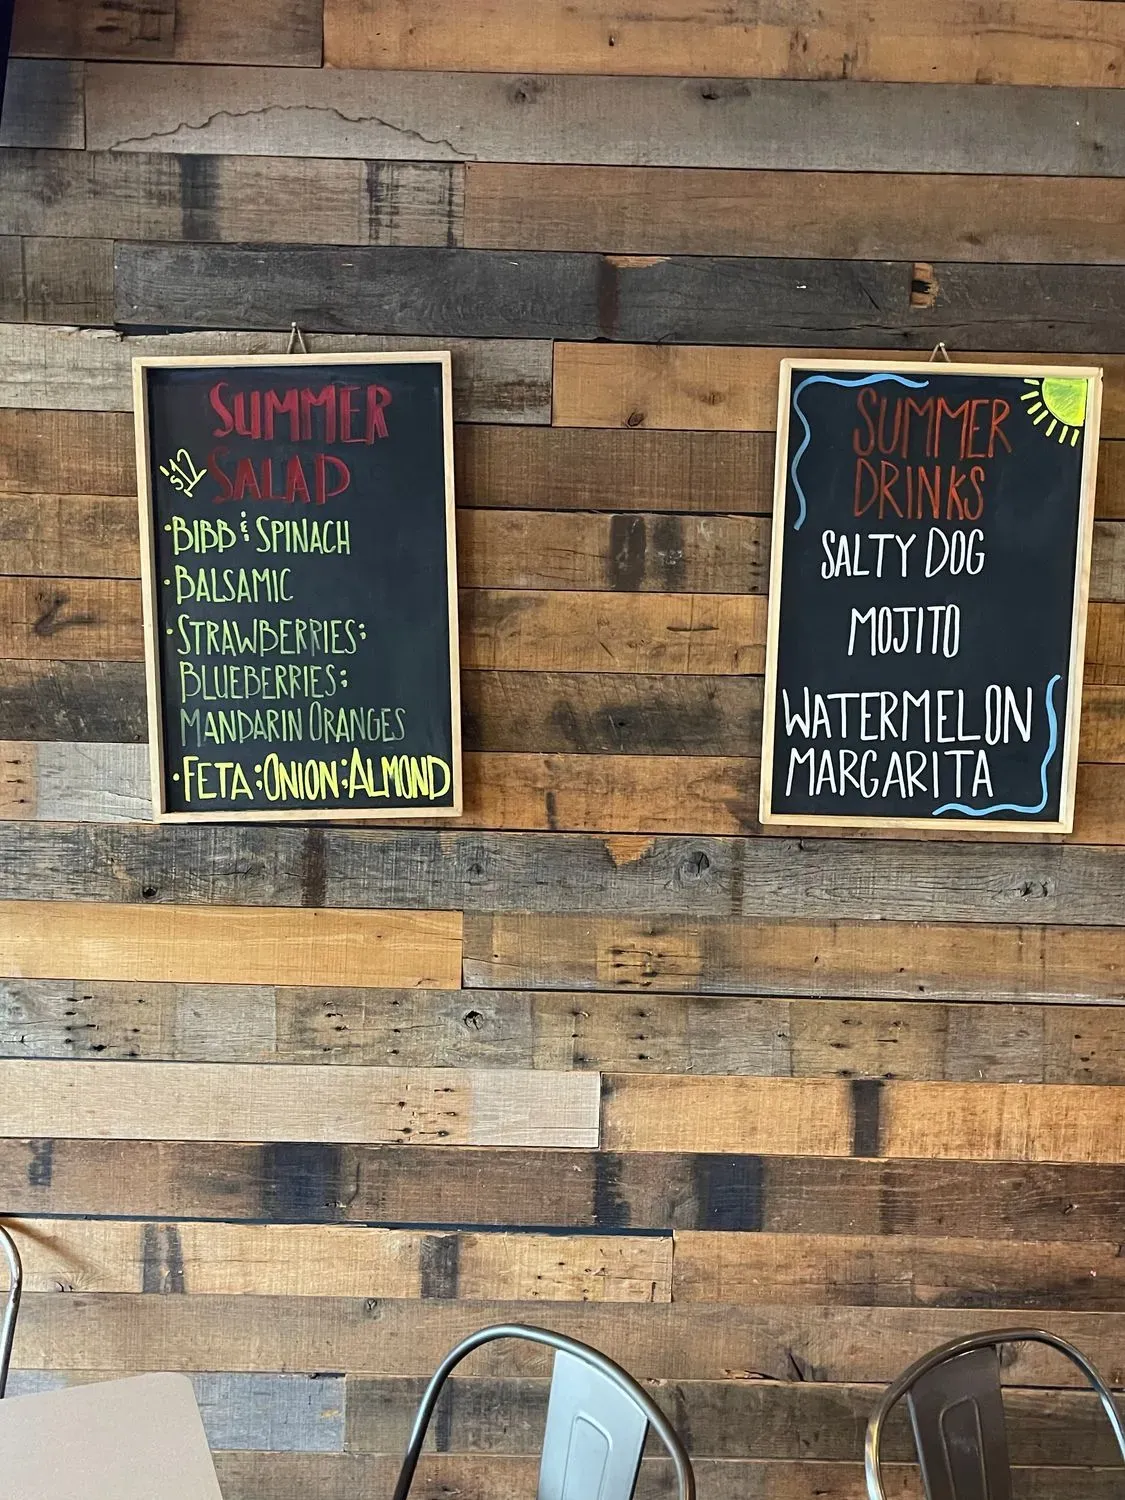 SUMMER
SALAD
$12
•BIBB & SPINACH
•BALSAMIC
•STRAWBERRIES;
BLUEBERRIES;
MANDARIN ORANGES
•FETA;ONION;ALMOND
SUMMER
DRINKS
SALTY DOG
MOJITO
WATERMELON
MARGARITA